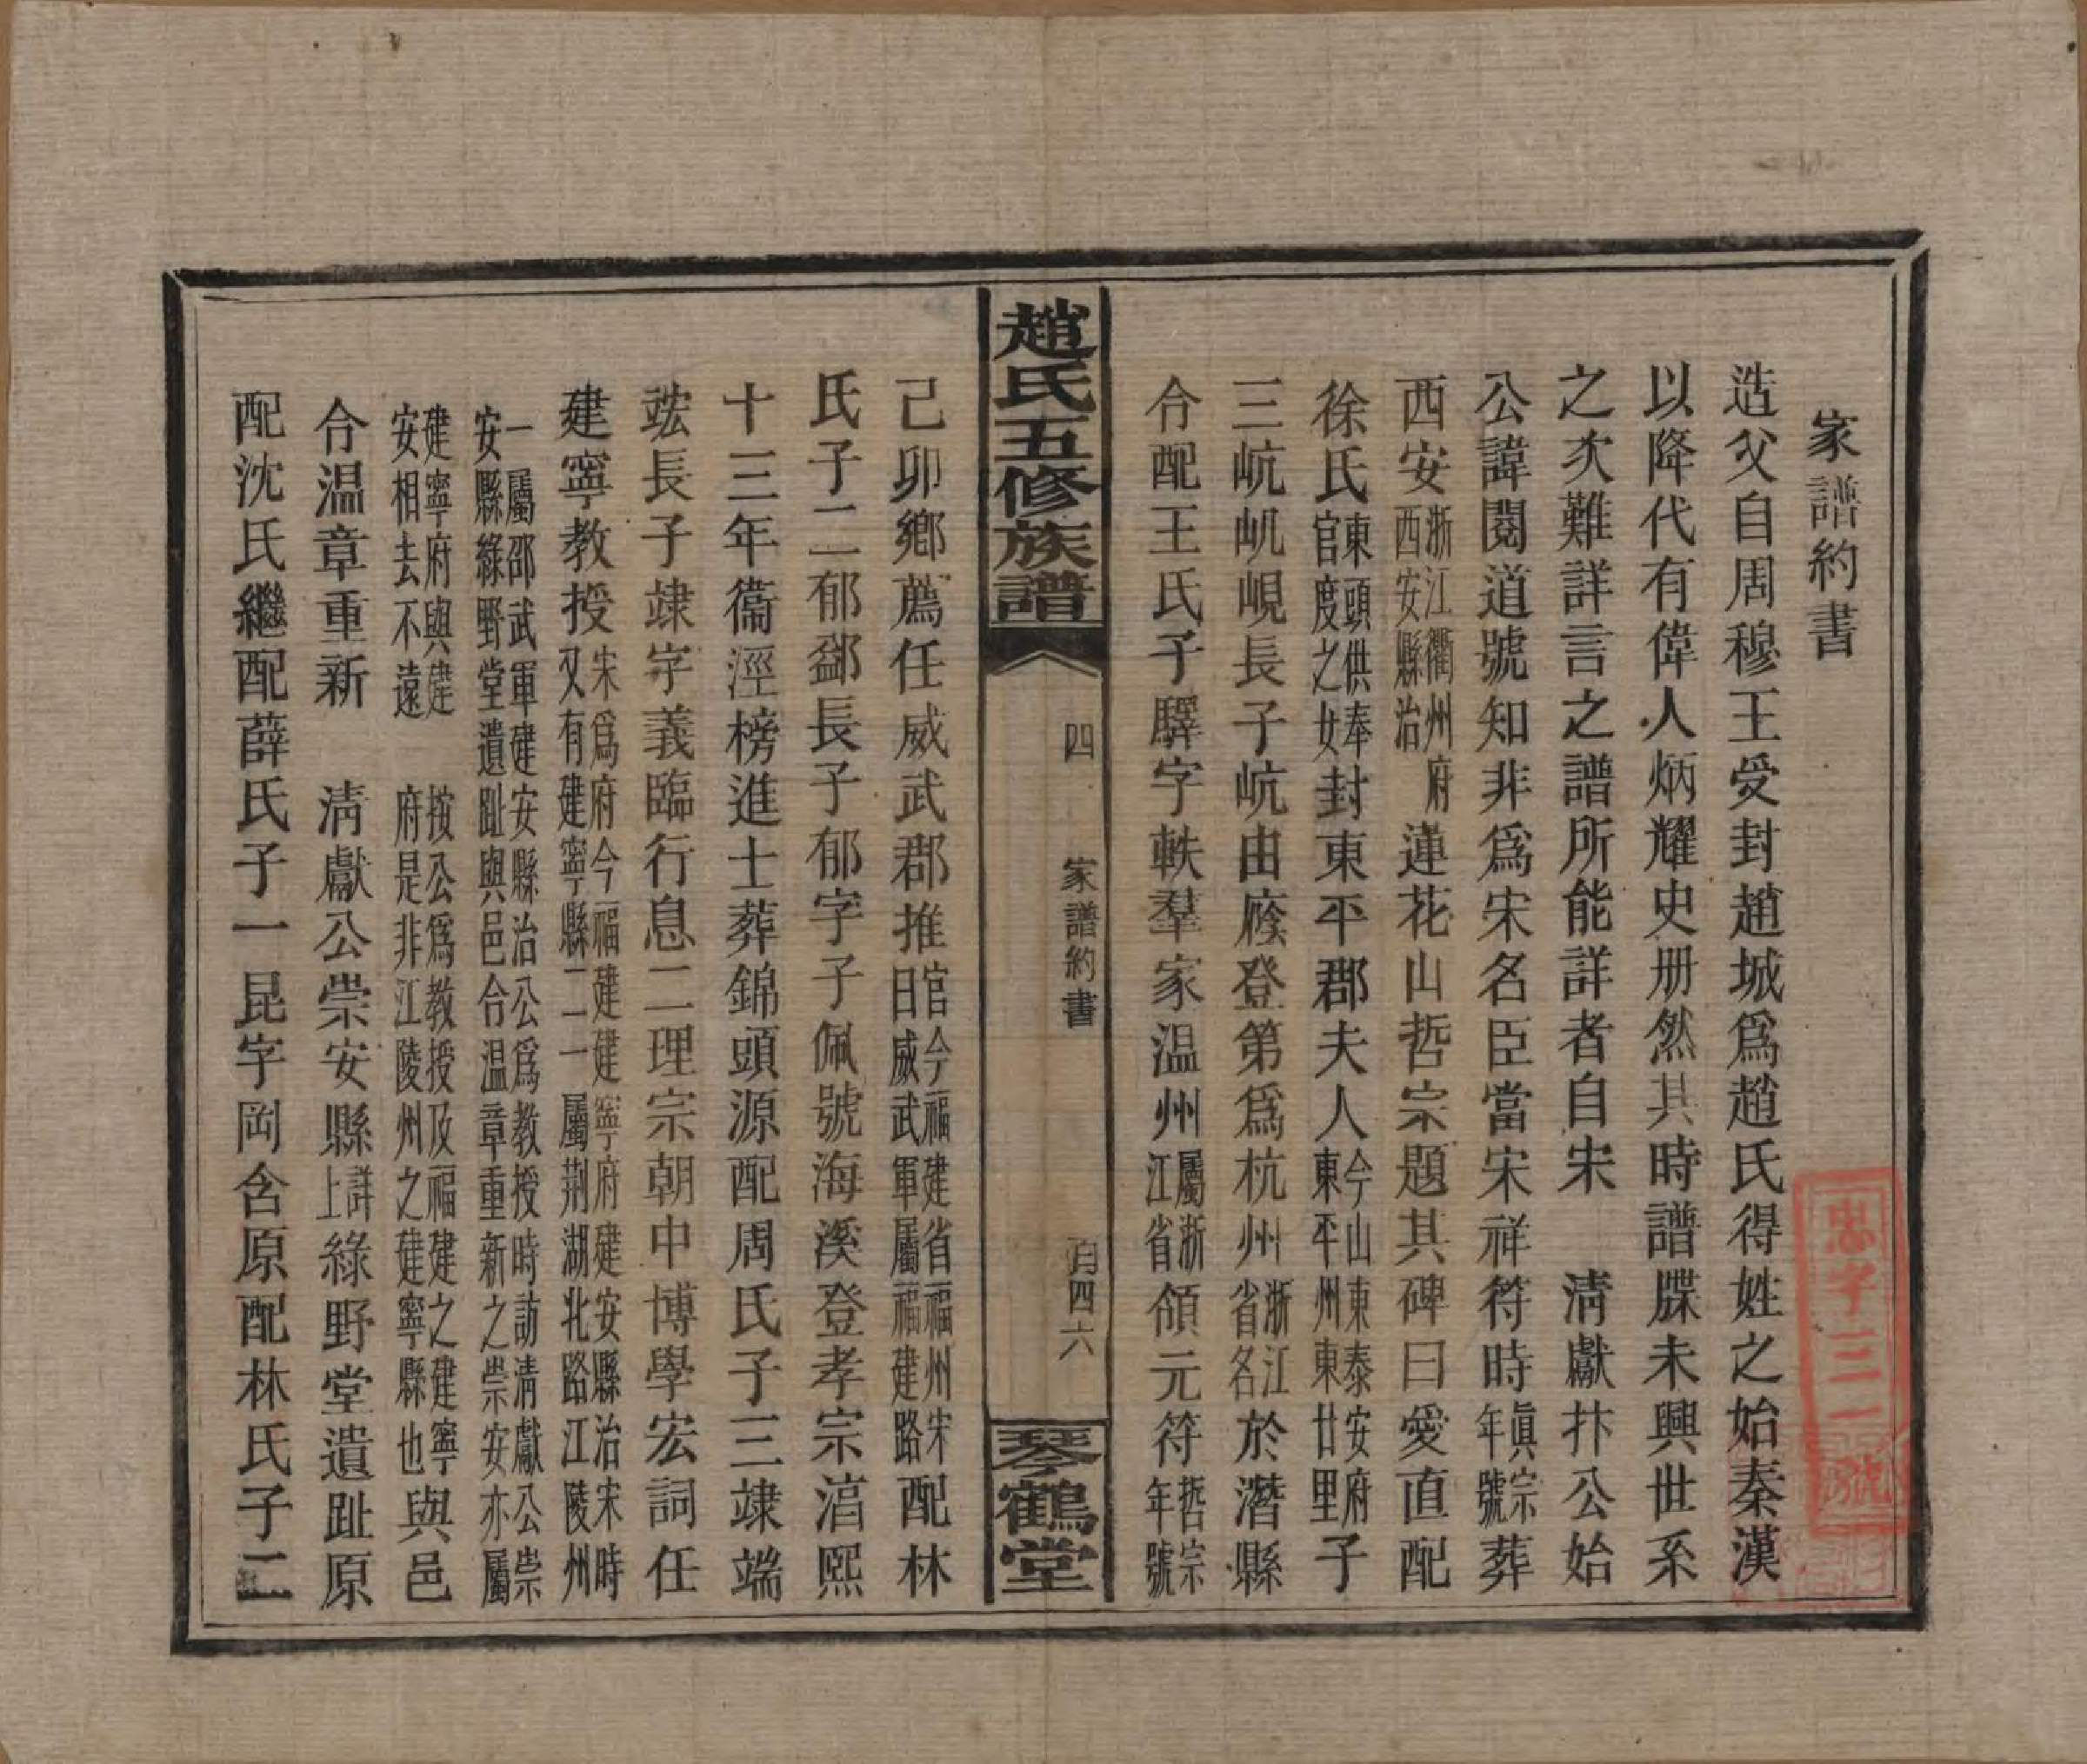 家譜約書
造父自周穆王受封趙城爲趙氏得姓之始秦漢
以降代有偉人炳耀史册然其時譜牒未興世系
之次難詳言之譜所能詳者自宋　清獻抃公始
公諱閱道號知非爲宋名臣當宋祥符時真宗年號葬
西安浙江衢州府西安縣治蓮花山哲宗題其碑曰愛直配
徐氏東頭供奉官度之女封東平郡夫人今山東泰安府東平州東廿里子
三㟁屼峴長子㟁由廕登第爲杭州浙江省名於潛縣
合配王氏子驛字軼羣家温州屬浙江省領元符哲宗年號
己卯鄉薦任威武郡推官今福建省福州宋曰威武軍屬福建路配林
氏子二郁鄒長子郁字子佩號海溪登孝宗湻熙
十三年衞涇榜進士葬錦頭源配周氏子三竦端
竑長子竦字義臨行息二理宗朝中博學宏詞任
建寧教授宋爲府今福建建寧府建安縣治宋時又有建寧縣二一屬荆湖北路江陵州
一屬邵武軍建安縣治公爲教授時訪清獻公崇安縣綠野堂遺趾與邑合温章重新之崇安亦屬
建寧府與建安相去不遠　按公爲教授及福建之建寧府是非江陵州之建寧縣也與邑
合温章重新　清獻公崇安縣詳上綠野堂遺趾原
配沈氏繼配薛氏子一昆字岡含原配林氏子二
趙氏五修族譜
四
家譜約書
月四六
琴鶴堂
忠字三一號